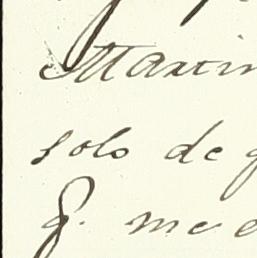 Martin
solo de
q. me